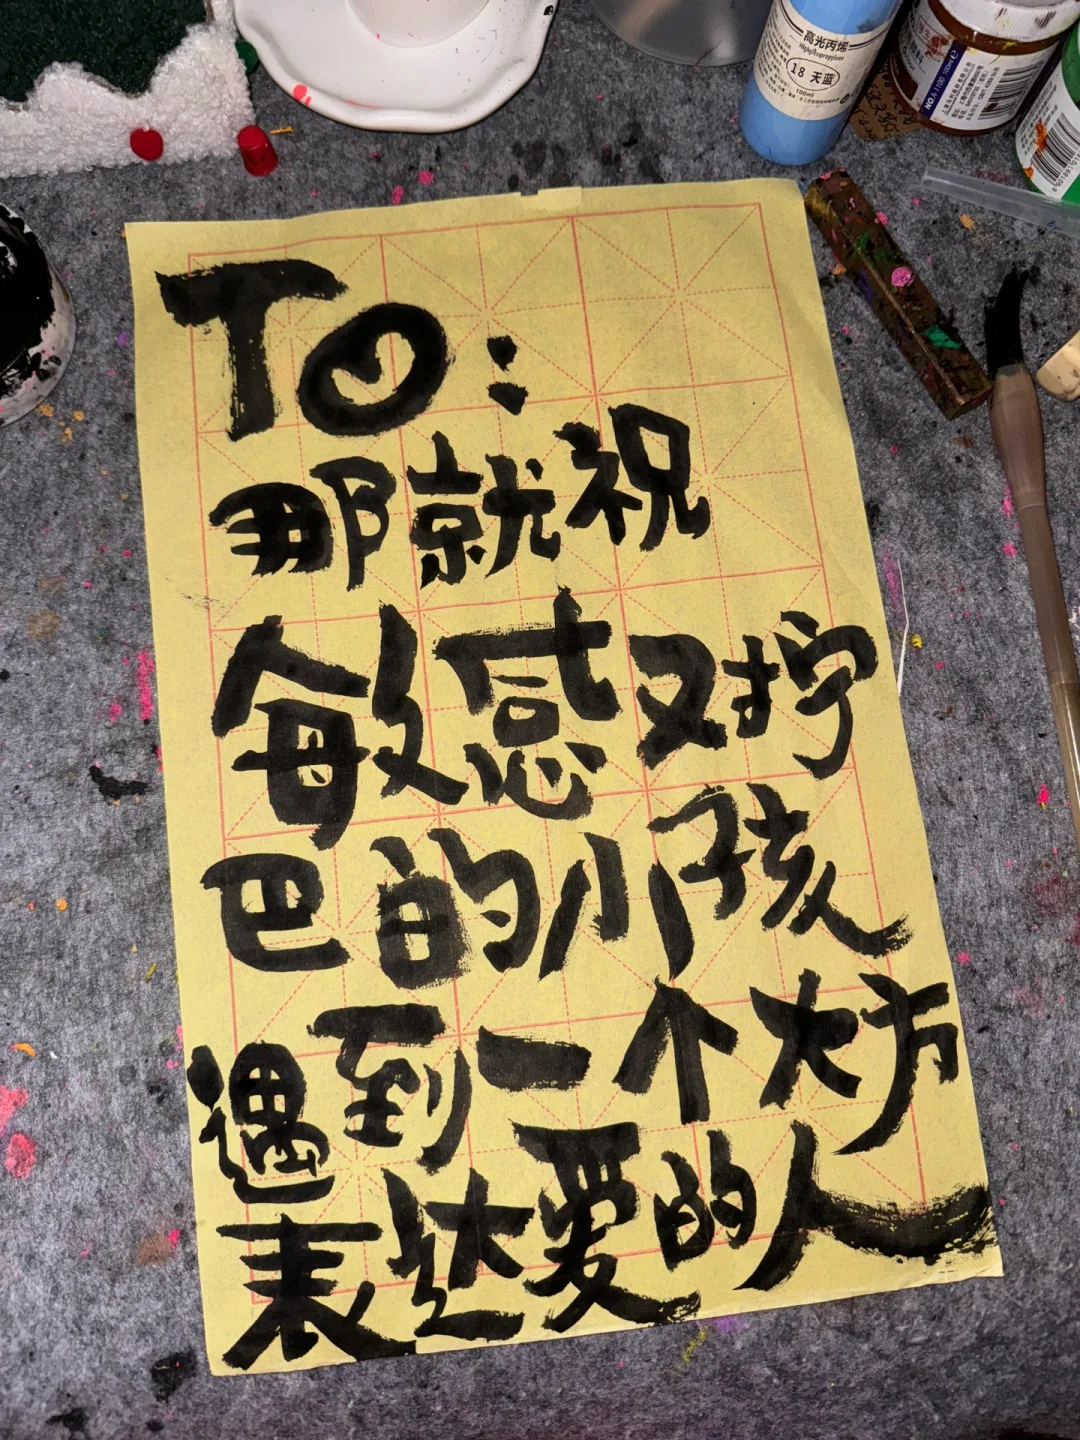 高光丙烯
18 天蓝
100ml
NO.A-1100 100ml
To:
那就祝
敏感又拧
巴的小孩
遇到一个大方
表达爱的人